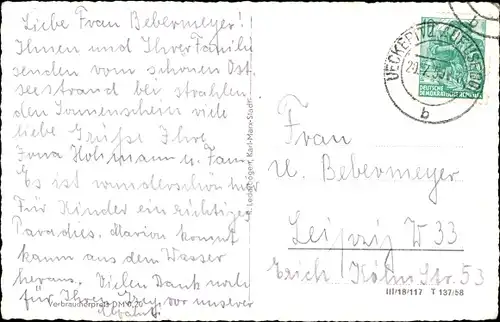 Liebe Frau Bebermeyer!
Ihnen und Ihrer Familie
senden vom schönen Ost-
seestrand bei strahlen-
den Sonnenschein viele
liebe Grüße Ihre
Hohmann u. Fam.
Es ist wunderschön hier
Für Kinder ein richtiges
Paradies. Marion kommt
kaum aus dem Wasser
heraus. Vielen Dank noch
für Ihre vor unserer
Abfahrt.
Verbraucherpreis DM 0,20
Karl-Marx-Stadt
UECKERITZ (USEDOM)
b
b
DEUTSCHE
DEMOKRATISCHE
Frau
U. Bebermeyer
Leipzig W 33
Erich Köhn Str. 53
III/18/117 T 137/58